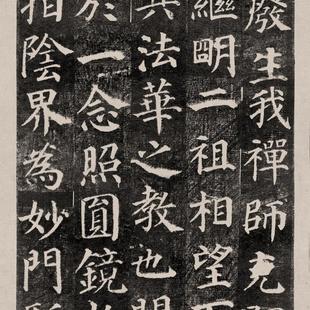 廢生我禪師克
繼明二祖相望
其法華之教也
於一念照圓鏡
指陰界為妙門